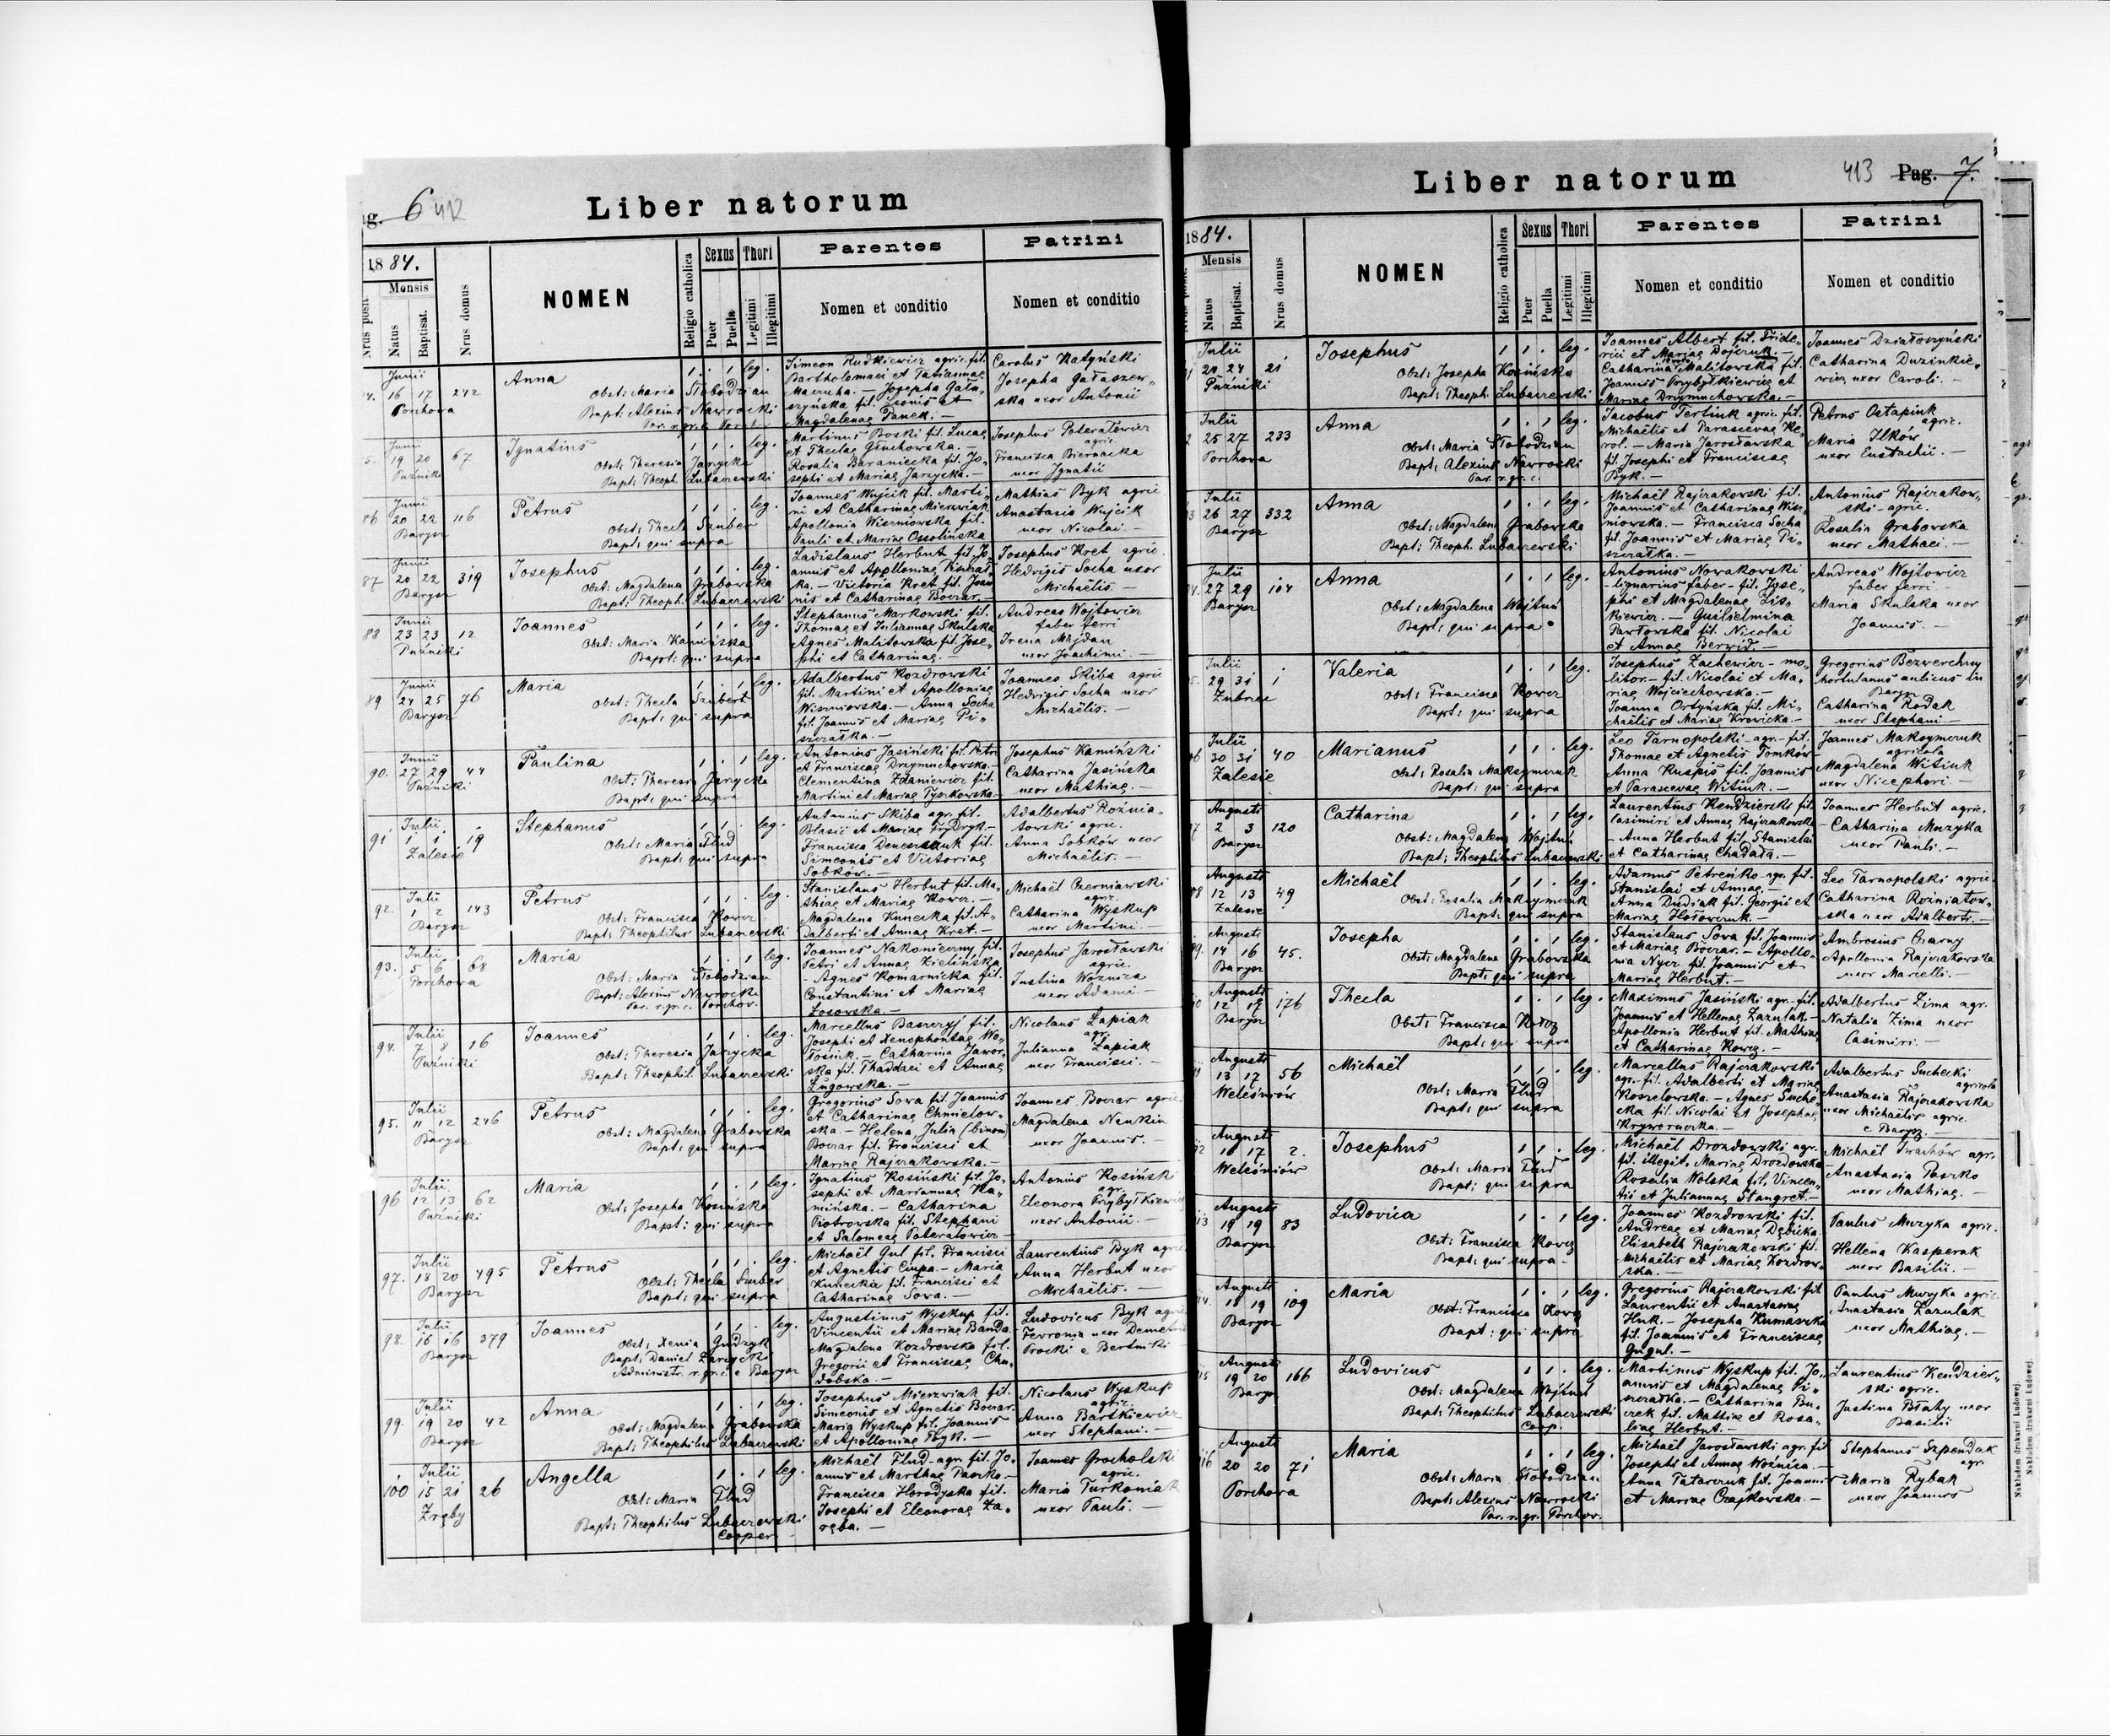 g. 6 412
Liber natorum
1884.
Mensis
Natus
Baptisat.
Nrus domus
NOMEN
Religio catholica
Sexus
Puer
Puella
Thori
Legitimi
Illegitimi
Parentes
Nomen et conditio
Patrini
Nomen et conditio
Junii
16 17 242
Porchova
Anna
Obst: Maria Słobodzian
Bapt: Alexius Nawrocki
1 . 1 leg.
Simeon Rudkiewicz agric. fil.
Bartholomaei et Tatiannae
Macucha. — Josepha Gała„
szyńska fil. Leonis et
Magdalenae Panek. —
Carolus Ratyński
Josepha Gałaszew„
ska uxor Antonii
Junii
19 20 67
Pużniki
Ignatius
Obst: Theresia Jarycka
Bapt: Theoph. Lubaczewski
1 1 . leg.
Martinus Boski fil. Lucae
et Theclae Gluchowska. —
Rosalia Baraniecka fil. Jo„
sephi et Mariae Jarzycka. —
Josephus Pateratowicz
agric.
Francisca Biernacka
uxor Ignatii
86
Junii
20 22 116
Barysz
Petrus
Obst: Thecla Szuber
Bapt: qui supra
1 1 . leg.
Joannes Wujcik fil. Marti„
ni et Catharinae Mierzwiak
Apollonia Wiszniowska fil.
Pauli et Mariae Ossolińska
Mathias Byk agric
Anastasia Wujcik
uxor Nicolai. —
87
Junii
20 22 319
Barysz
Josephus
Obst: Magdalena Grabowska
Bapt: Theoph. Lubaczewski
1 1 . leg.
Ladislaus Herbut fil. Jo„
annis et Apolloniae Piszczał„
ka. — Victoria Kret fil. Joan
nis et Catharinae Boczar. —
Josephus Kret agric
Hedvigis Socha uxor
Michaëlis. —
88
Junii
23 23 12
Pużniki
Joannes
Obst: Maria Kamińska
Bapt: qui supra
1 1 . leg.
Stephanus Markowski fil.
Thomae et Juliannae Skulska
Agnes Malitowska fil. Jose„
phi et Catharinae. —
Andreas Wojtowicz
faber ferri
Irena Majdan
uxor Joachimi. —
89
Junii
24 25 76
Barysz
Maria
Obst: Thecla Szubert
Bapt: qui supra
1 . 1 leg.
Adalbertus Kozdrowski
fil. Martini et Apolloniae
Wiszniowska. — Anna Socha
fil. Joannis et Mariae Pi„
szczałka. —
Joannes Skiba agric
Hedvigis Socha uxor
Michaëlis. —
90.
Junii
27 29 44
Pużniki
Paulina
Obst: Theresia Jarycka
Bapt: qui supra
1 . 1 leg.
Antonius Jasiński fil. Petri
et Franciscae Drzymuchowska. —
Clementina Zdaniewicz fil.
Martini et Mariae Tyszkowska. —
Josephus Kamiński
Catharina Jasińska
uxor Mathiae. —
91
Julii
1 1 19
Zalesie
Stephanus
Obst: Maria Flud
Bapt: qui supra
1 1 . leg.
Antonius Skiba agr. fil.
Blasii et Mariae Frydryk. —
Francisca Deneszczuk fil.
Simeonis et Victoriae
Sobków. —
Adalbertus Roznia„
towski agric.
Anna Sobków uxor
Michaëlis. —
92.
Julii
1 2 143
Barysz
Petrus
Obst: Francisca Kowcz
Bapt: Theophilus Lubaczewski
1 1 . leg.
Stanislaus Herbut fil. Ma„
thiae et Mariae Kowcz. —
Magdalena Kunecka fil. A„
dalberti et Annae Kret. —
Michaël Czerniawski
agric.
Catharina Wyskup
uxor Martini. —
93.
Julii
5 6 68
Porchowa
Maria
Obst: Maria Słobodzian
Bapt: Alexius Nawrocki
Par. r. gr. c. Porchov.
1 . 1 leg.
Joannes Nakonieczny fil.
Petri et Annae Zielińska
— Agnes Komarnicka fil.
Constantini et Mariae
Łosowska. —
Josephus Jarosławski
agric.
Justina Woznica
uxor Adami —
94.
Julii
7 8 16
Pużniki
Joannes
Obst: Theresia Jarzycka
Bapt: Theophil. Lubaczewski
1 1 . leg.
Marcellus Baszczyj fil.
Josephi et Xenophontae Wo„
łosiuk. — Catharina Jawor„
ska fil. Thaddaei et Annae
Ługowska. —
Nicolaus Łapiak
agr.
Julianna Łapiak
uxor Francisci. —
95.
Julii
11 12 246
Barysz
Petrus
Obst: Magdalena Grabowska
Bapt: qui supra
1 1 . leg.
Gregorius Sova fil. Joannis
et Catharinae Chmielow„
ska. — Helena Julia (binom)
Boczar fil. Francisci et
Mariae Rajczakowska. —
Joannes Boczar agric
Magdalena Nenkin
uxor Joannis. —
96
Julii
12 13 62
Pużniki
Maria
Obst: Josepha Kosińska
Bapt: qui supra
1 . 1 leg.
Ignatius Kosiński fil. Jo„
sephi et Mariannae Ka„
mińska. — Catharina
Piotrowska fil. Stephani
et Salomeae Pateratowicz —
Antonius Kosiński
agr.
Eleonora Przybyłkiewicz
uxor Antonii. —
97.
Julii
18 20 495
Barysz
Petrus
Obst: Thecla Szuber
Bapt: qui supra
1 1 . leg.
Michaël Gul fil. Francisci
et Agnetis Ciupa. — Maria
Kunecka fil. Francisci et
Catharinae Sova. —
Laurentius Byk agric
Anna Herbut uxor
Michaëlis. —
98.
Julii
16 16 379
Barysz
Joannes
Obst: Xenia Gudzyk
Bapt: Daniel Zarzycki
Administr. r. gr. c. e Barysz
1 1 . leg.
Augustinus Wyskup fil.
Vincentii et Mariae Banda.
Magdalena Kozdrowska fil.
Gregorii et Franciscae Cha„
dobska. —
Ludovicus Byk agric
Fevronia uxor Demetrii
Procki e Bertniki
99.
Julii
19 20 42
Barysz
Anna
Obst: Magdalena Grabowska
Bapt: Theophilus Lubaczewski
1 . 1 leg.
Josephus Mierzwiak fil.
Simeonis et Agnetis Boczar.
Maria Wyskup fil. Joannis
et Apolloniae Byk. —
Nicolaus Wyskup
agric.
Anna Bartkiewicz
uxor Stephani. —
100
Julii
15 21 26
Zręby
Angella
Obst: Maria Flud
Bapt: Theophilus Lubaczewski
Cooper.
1 . 1 leg.
Michaël Flud - agr. fil. Jo„
annis et Marthae Paszko. —
Francisca Horodyska fil.
Josephi et Eleonorae Za„
ręba. —
Joannes Grocholski
agric.
Maria Turkoniak
uxor Pauli. —
Liber natorum
413 Pag. 7.
1884.
Mensis
Natus
Baptisat.
Nrus domus
NOMEN
Religio catholica
Sexus
Puer
Puella
Thori
Legitimi
Illegitimi
Parentes
Nomen et conditio
Patrini
Nomen et conditio
Julii
20 24 21
Pużniki
Josephus
Obst: Josepha Kosińska
Bapt: Theoph. Lubaczewski
1 1 . leg.
Joannes Albert fil. Fride„
rici et Mariae Bojczuk. —
Catharina Malitowska fil.
Joannis Przybyłkiewicz et
Mariae Drzymuchowska. —
Joannes Działoszyński
Catharina Duzinkie„
wicz uxor Caroli. —
Julii
25 27 233
Porchova
Anna
Obst: Maria Słobodzian
Bapt: Alexius Nawrocki
Par. r. gr. c.
1 . 1 leg.
Jacobus Terlink agric. fil.
Michaëlis et Parascevae Ke„
rol. — Maria Jarosławska
fil. Josephi et Franciscae
Byk. —
Petrus Ostapiuk
agric.
Maria Ilków
uxor Eustachii. —
Julii
26 27 332
Barysz
Anna
Obst: Magdalena Grabowska
Bapt: Theoph. Lubaczewski
1 . 1 leg.
Michaël Rajczakowski fil.
Joannis et Catharinae Wisz„
niowska. — Francisca Socha
fil. Joannis et Mariae Pi„
szczałka. —
Antonius Rajczakow„
ski - agric.
Rosalia Grabowska
uxor Mathaei. —
Julii
27 29 104
Barysz
Anna
Obst: Magdalena Wojtuń
Bapt: qui supra
1 . 1 leg.
Antonius Nowakowski
- lignarius faber - fil. Jose„
phi et Magdalenae Lis„
kiewicz. — Guilielmina
Pawłowska fil. Nicolai
et Annae Berwid. —
Andreas Wojtowicz
faber ferri —
Maria Skulska uxor
Joannis. —
Julii
29 31 1
Zubrzec
Valeria
Obst: Francisca Kowcz
Bapt: qui supra
1 . 1 leg.
Josephus Zacherwicz - mo„
litor. — fil. Nicolai et Ma„
riae Wojciechowska. —
Joanna Ortyńska fil. Mi„
chaëlis et Mariae Krowicka. —
Gregorius Bezwerchny
hortulanus aulicus in
Barysz
Catharina Rodak
uxor Stephani —
Julii
30 31 40
Zalesie
Marianus
Obst: Rosalia Maksymczuk
Bapt: qui supra
1 1 . leg.
Leo Tarnopolski - agr. - fil.
Thomae et Agnetis Tomków
Anna Kuspiś fil. Joannis
et Parascevae Witiuk. —
Joannes Maksymczuk
agricola
Magdalena Witiuk
uxor Nicephori —
Augusti
2 3 120
Barysz
Catharina
Obst: Magdalena Wojtuń
Bapt: Theophilus Lubaczewski
1 . 1 leg.
Laurentius Kendzierski fil.
Casimiri et Annae Rajczakowska
— Anna Herbut fil. Stanislai
et Catharinae Chadada. —
Joannes Herbut agric.
— Catharina Muzyka
uxor Pauli. —
Augusti
12 13 49
Zalesie
Michaël
Obst: Rosalia Maksymczuk
Bapt: qui supra
1 1 . leg.
Adamus Petreńko agr. fil.
Stanislai et Annae —
Anna Dudiak fil. Georgii et
Mariae Hołowczuk. —
Leo Tarnopolski agric.
Catharina Rożniatow„
ska uxor Adalberti. —
Augusti
14 16 45.
Barysz
Josepha
Obst: Magdalena Grabowska
Bapt: qui supra
1 . 1 leg.
Stanislaus Sova fil. Joannis
et Mariae Boczar. — Apollo„
nia Nycz fil. Joannis et
Mariae Herbut. —
Ambrosius Czarny
Apollonia Rajczakowska
uxor Marcelli. —
Augusti
12 17 176
Barysz
Thecla
Obst: Francisca Kowcz
Bapt: qui supra
1 . 1 leg.
Maximus Jasiński agr. - fil.
Joannis et Hellenae Zazulak. —
Apollonia Herbut fil. Mathiae
et Catharinae Kowcz. —
Adalbertus Zima agr.
Natalia Zima uxor
Casimiri. —
Augusti
13 17 56
Weleśniów
Michaël
Obst: Maria Flud
Bapt: qui supra
1 1 . leg.
Marcellus Rajczakowski
agr. fil. Adalberti et Mariae
Koszelowska. — Agnes Suche„
cka fil. Nicolai et Josephae
Kryworucka. —
Adalbertus Suchecki
agricola
Anastasia Rajczakowska
uxor Michaëlis agric.
e Barysz. —
Augusti
16 17 2.
Weleśniów
Josephus
Obst: Maria Flud
Bapt: qui supra
1 1 . leg.
Michaël Drozdowski agr.
fil. illegit. Mariae Drozdowska
Rosalia Wolska fil. Vincen„
tii et Juliannae Stangret. —
Michaël Iwachów agr.
Anastasia Paszko
uxor Mathiae. —
Augusti
19 19 83
Barysz
Ludovica
Obst: Francisca Kowcz
Bapt: qui supra
1 . 1 leg.
Joannes Kozdrowski fil.
Andreae et Mariae Dębicka.
Elisabeth Rajczakowski fil.
Michaëlis et Mariae Kozdrow„
ska. —
Paulus Muzyka agric.
Hellena Kasperak
uxor Basilii. —
Augusti
18 19 109
Barysz
Maria
Obst: Francisca Kowcz
Bapt: qui supra
1 . 1 leg.
Gregorius Rajczakowski fil.
Laurentii et Anastasiae
Huk. — Josepha Kumaszka
fil. Joannis et Franciscae
Gugul. —
Paulus Muzyka agric.
Anastasia Zazulak
uxor Mathiae. —
Augusti
19 20 166
Barysz
Ludovicus
Obst: Magdalena Wojtuń
Bapt: Theophilus Lubaczewski
Coop.
1 1 . leg.
Martinus Wyskup fil. Jo„
annis et Magdalenae Pi„
szczałka. — Catharina Bu„
czek fil. Mathiae et Rosa„
liae Herbut. —
Laurentius Kendzier„
ski agric.
Justina Biały uxor
Basilii
116
Augusti
20 20 71
Porchova
Maria
Obst: Maria Słobodzian
Bapt: Alexius Nawrocki
Par. r. gr. Porchov.
1 . 1 leg.
Michaël Jarosławski agr. fil
Josephi et Annae Woźnica. —
Anna Tatarczuk fil. Joannis
et Mariae Czajkowska. —
Stephanus Szpendak
agr.
Maria Rybak
uxor Joannis
Nakładem drukarni Ludowej.
Nakładem drukarni Ludowej.